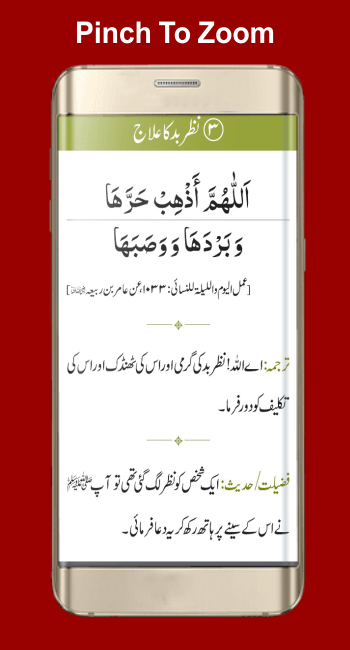 Pinch To Zoom
③ نظر بد کا علاج
اَللّٰهُمَّ أَذْهِبْ حَرَّهَا
وَبَرْدَهَا وَوَصَبَهَا
[عمل الیوم واللیلۃ للنسائی: ۱۰۳۳، عن عامر بن ربیعہ ؓ]
ترجمہ: اے اللہ! نظر بد کی گرمی اور اس کی ٹھنڈک اور اس کی
تکلیف کو دور فرما۔
فضیلت/حدیث: ایک شخص کو نظر لگ گئی تھی تو آپ ﷺ
نے اس کے سینے پر ہاتھ رکھ کر یہ دعا فرمائی۔